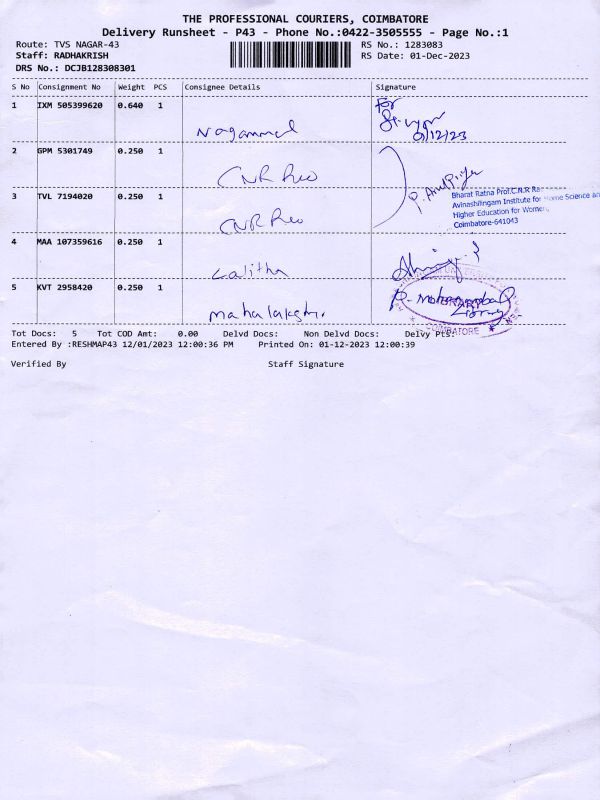 THE PROFESSIONAL COURIERS, COIMBATORE
Delivery Runsheet - P43 - Phone No.:0422-3505555 - Page No.:1
Route: TVS NAGAR-43 RS No.: 1283083
Staff: RADHAKRISH RS Date: 01-Dec-2023
DRS No.: DCJB128308301
S No Consignment No Weight PCS Consignee Details Signature
1 IXM 505399620 0.640 1 For
Nagammal
01/12/23
2 GPM 5301749 0.250 1
CNR Rao
3 TVL 7194020 0.250 1 P. Arul Priya
Bharat Ratna Prof.C.N.R Ra
Avinashilingam Institute for Home Science an
Higher Education for Women,
Coimbatore-641043
CNR Rao
4 MAA 107359616 0.250 1
Lalitha
5 KVT 2958420 0.250 1
LIBRARY
Mahalakshi
COIMBATORE
Tot Docs: 5 Tot COD Amt: 0.00 Delvd Docs: Non Delvd Docs: Delvy Pts:
Entered By :RESHMAP43 12/01/2023 12:00:36 PM Printed On: 01-12-2023 12:00:39
Verified By Staff Signature